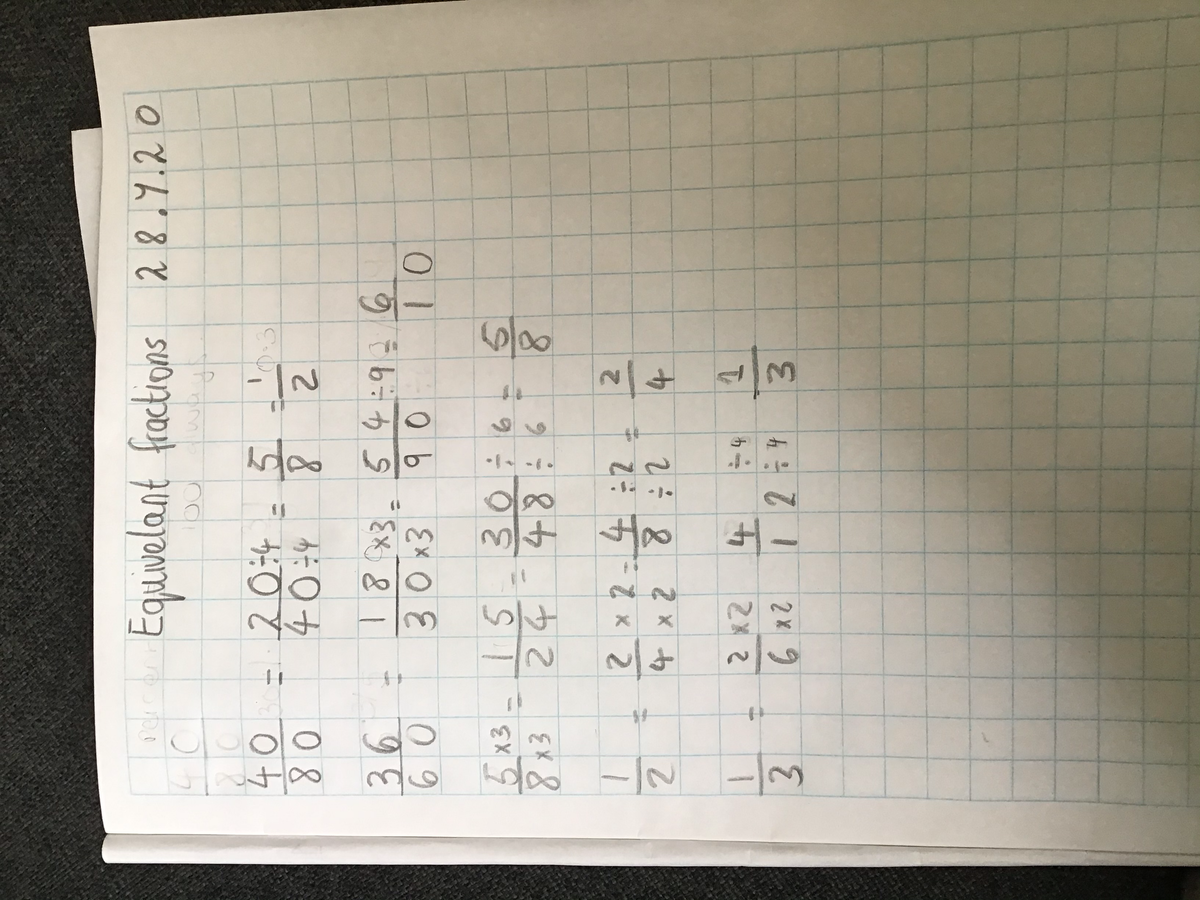 Equivelant fractions 28.4.20
40/80 = 20÷4/40÷4 = 5/8 = 1/2
36/60 = 18×3/30×3 = 54÷9/90 = 6/10
5×3/8×3 = 15/24 = 30÷6/48÷6 = 5/8
1/2 = 2×2/4×2 = 4÷2/8÷2 = 2/4
1/3 = 2×2/6×2 4÷4/12÷4 1/3